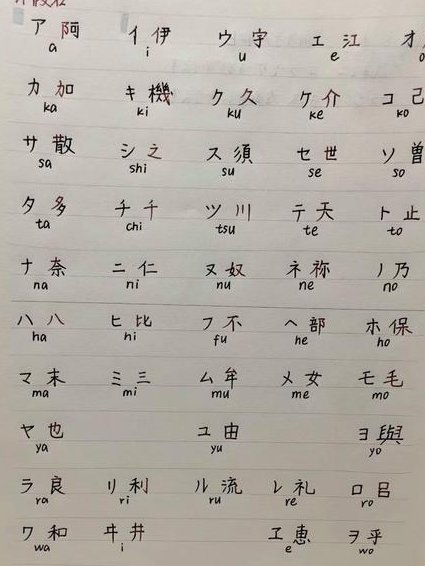 ア 阿 イ 伊 ウ 宇 エ 江 オ
a i u e o
カ 加 キ 機 ク 久 ケ 介 コ 己
ka ki ku ke ko
サ 散 シ 之 ス 須 セ 世 ソ 曽
sa shi su se so
タ 多 チ 千 ツ 川 テ 天 ト 止
ta chi tsu te to
ナ 奈 ニ 仁 ヌ 奴 ネ 祢 ノ 乃
na ni nu ne no
ハ 八 ヒ 比 フ 不 ヘ 部 ホ 保
ha hi fu he ho
マ 末 ミ 三 ム 牟 メ 女 モ 毛
ma mi mu me mo
ヤ 也 ユ 由 ヨ 與
ya yu yo
ラ 良 リ 利 ル 流 レ 礼 ロ 呂
ra ri ru re ro
ワ 和 ヰ 井 ヱ 恵 ヲ 乎
wa i e wo